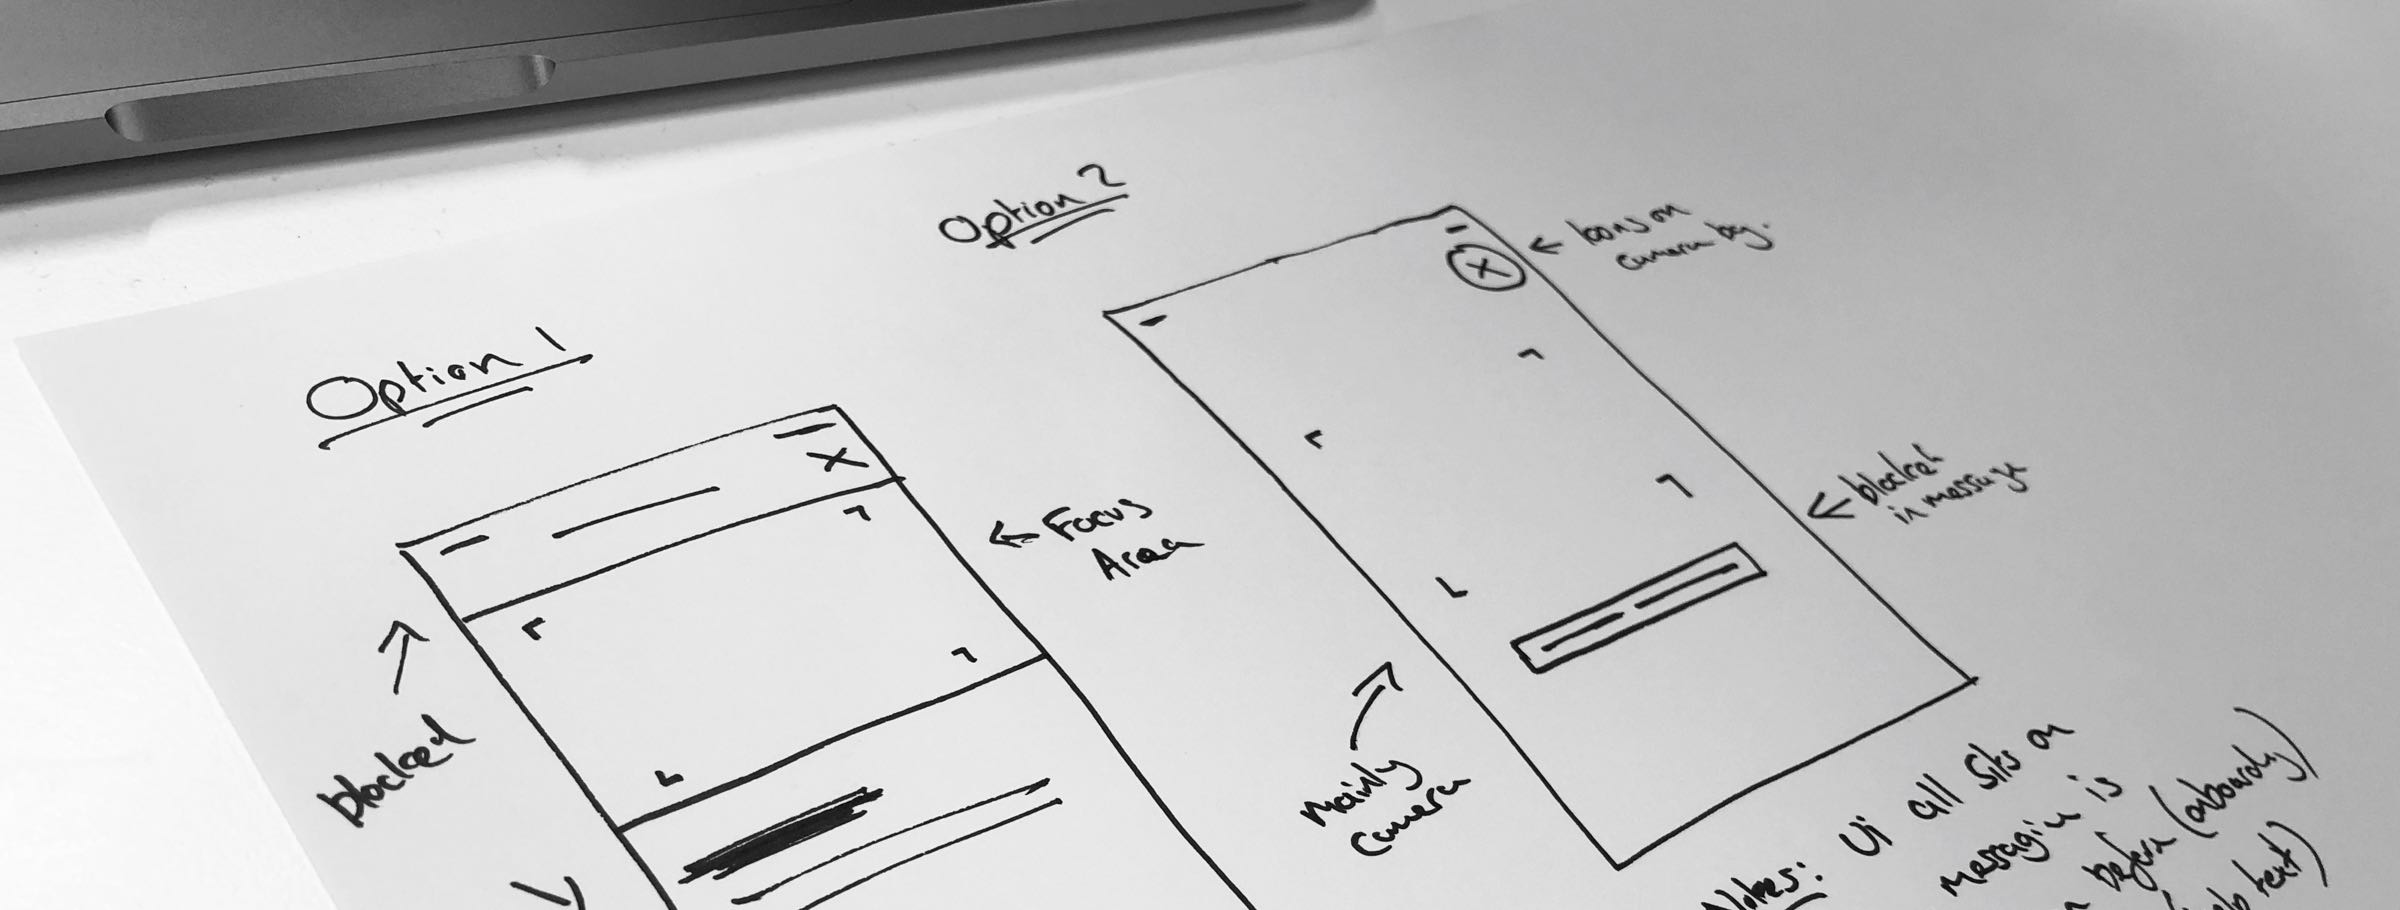 Option 1
blocked
← Focus
Area
Option 2
← Icons on
camera bg.
← blocked
in message
Mainly
Camera
Notes: Ui all sits on
messaging is
before (onboarding)
text)